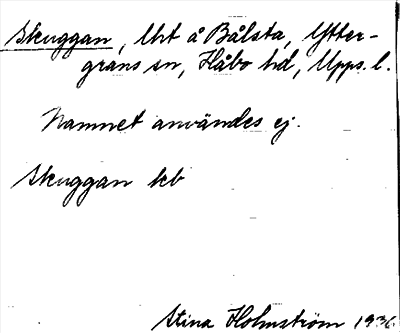 Skuggan, lht å Bålsta, Ytter-
grans sn, Håbo hd, Upps. l.
Namnet användes ej.
Skuggan kb
Stina Holmström 1936